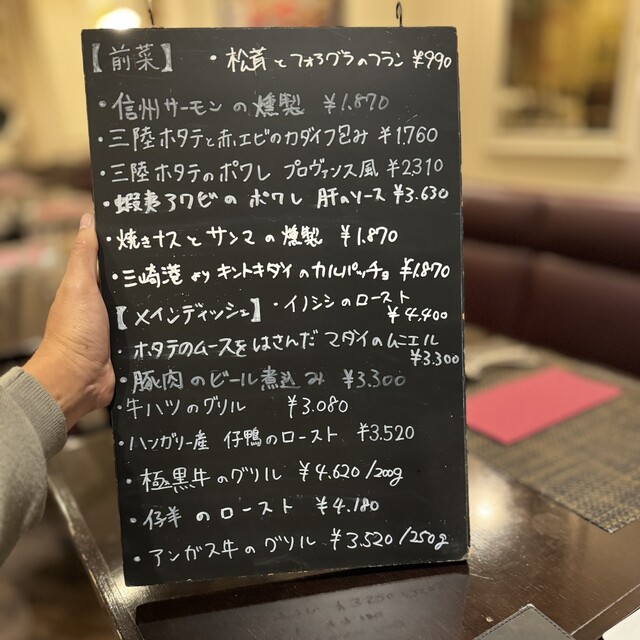 【前菜】 ・松茸とフォアグラのフラン ¥990
・信州サーモンの燻製 ¥1.870
・三陸ホタテと赤エビのカダイフ包み ¥1.760
・三陸ホタテのポワレ プロヴァンス風 ¥2310
・蝦夷アワビのポワレ 肝のソース ¥3.630
・焼きナスとサンマの燻製 ¥1.870
・三崎港よりキントキダイのカルパッチョ ¥1.870
【メインディッシュ】・イノシシのロースト
¥4.400
・ホタテのムースをはさんだマダイのムニエル
¥3.300
・豚肉のビール煮込み ¥3.300
・牛ハツのグリル ¥3.080
・ハンガリー産 仔鴨のロースト ¥3.520
・極黒牛のグリル ¥4.620/200g
・仔羊のロースト ¥4.180
・アンガス牛のグリル ¥3.520/250g